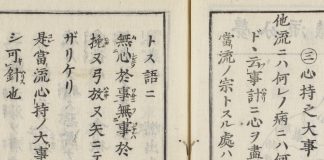 ㊂心持之大事
他流ニハ何レノ病ニハ何
ド、云事計ニ心ヲ盡
當流ノ宗トスル處ハ
トス語ニ
無心於事無事於
挽又弓放又矢ニテ
ザリケリ
是當流心持ノ大事
シ可針也